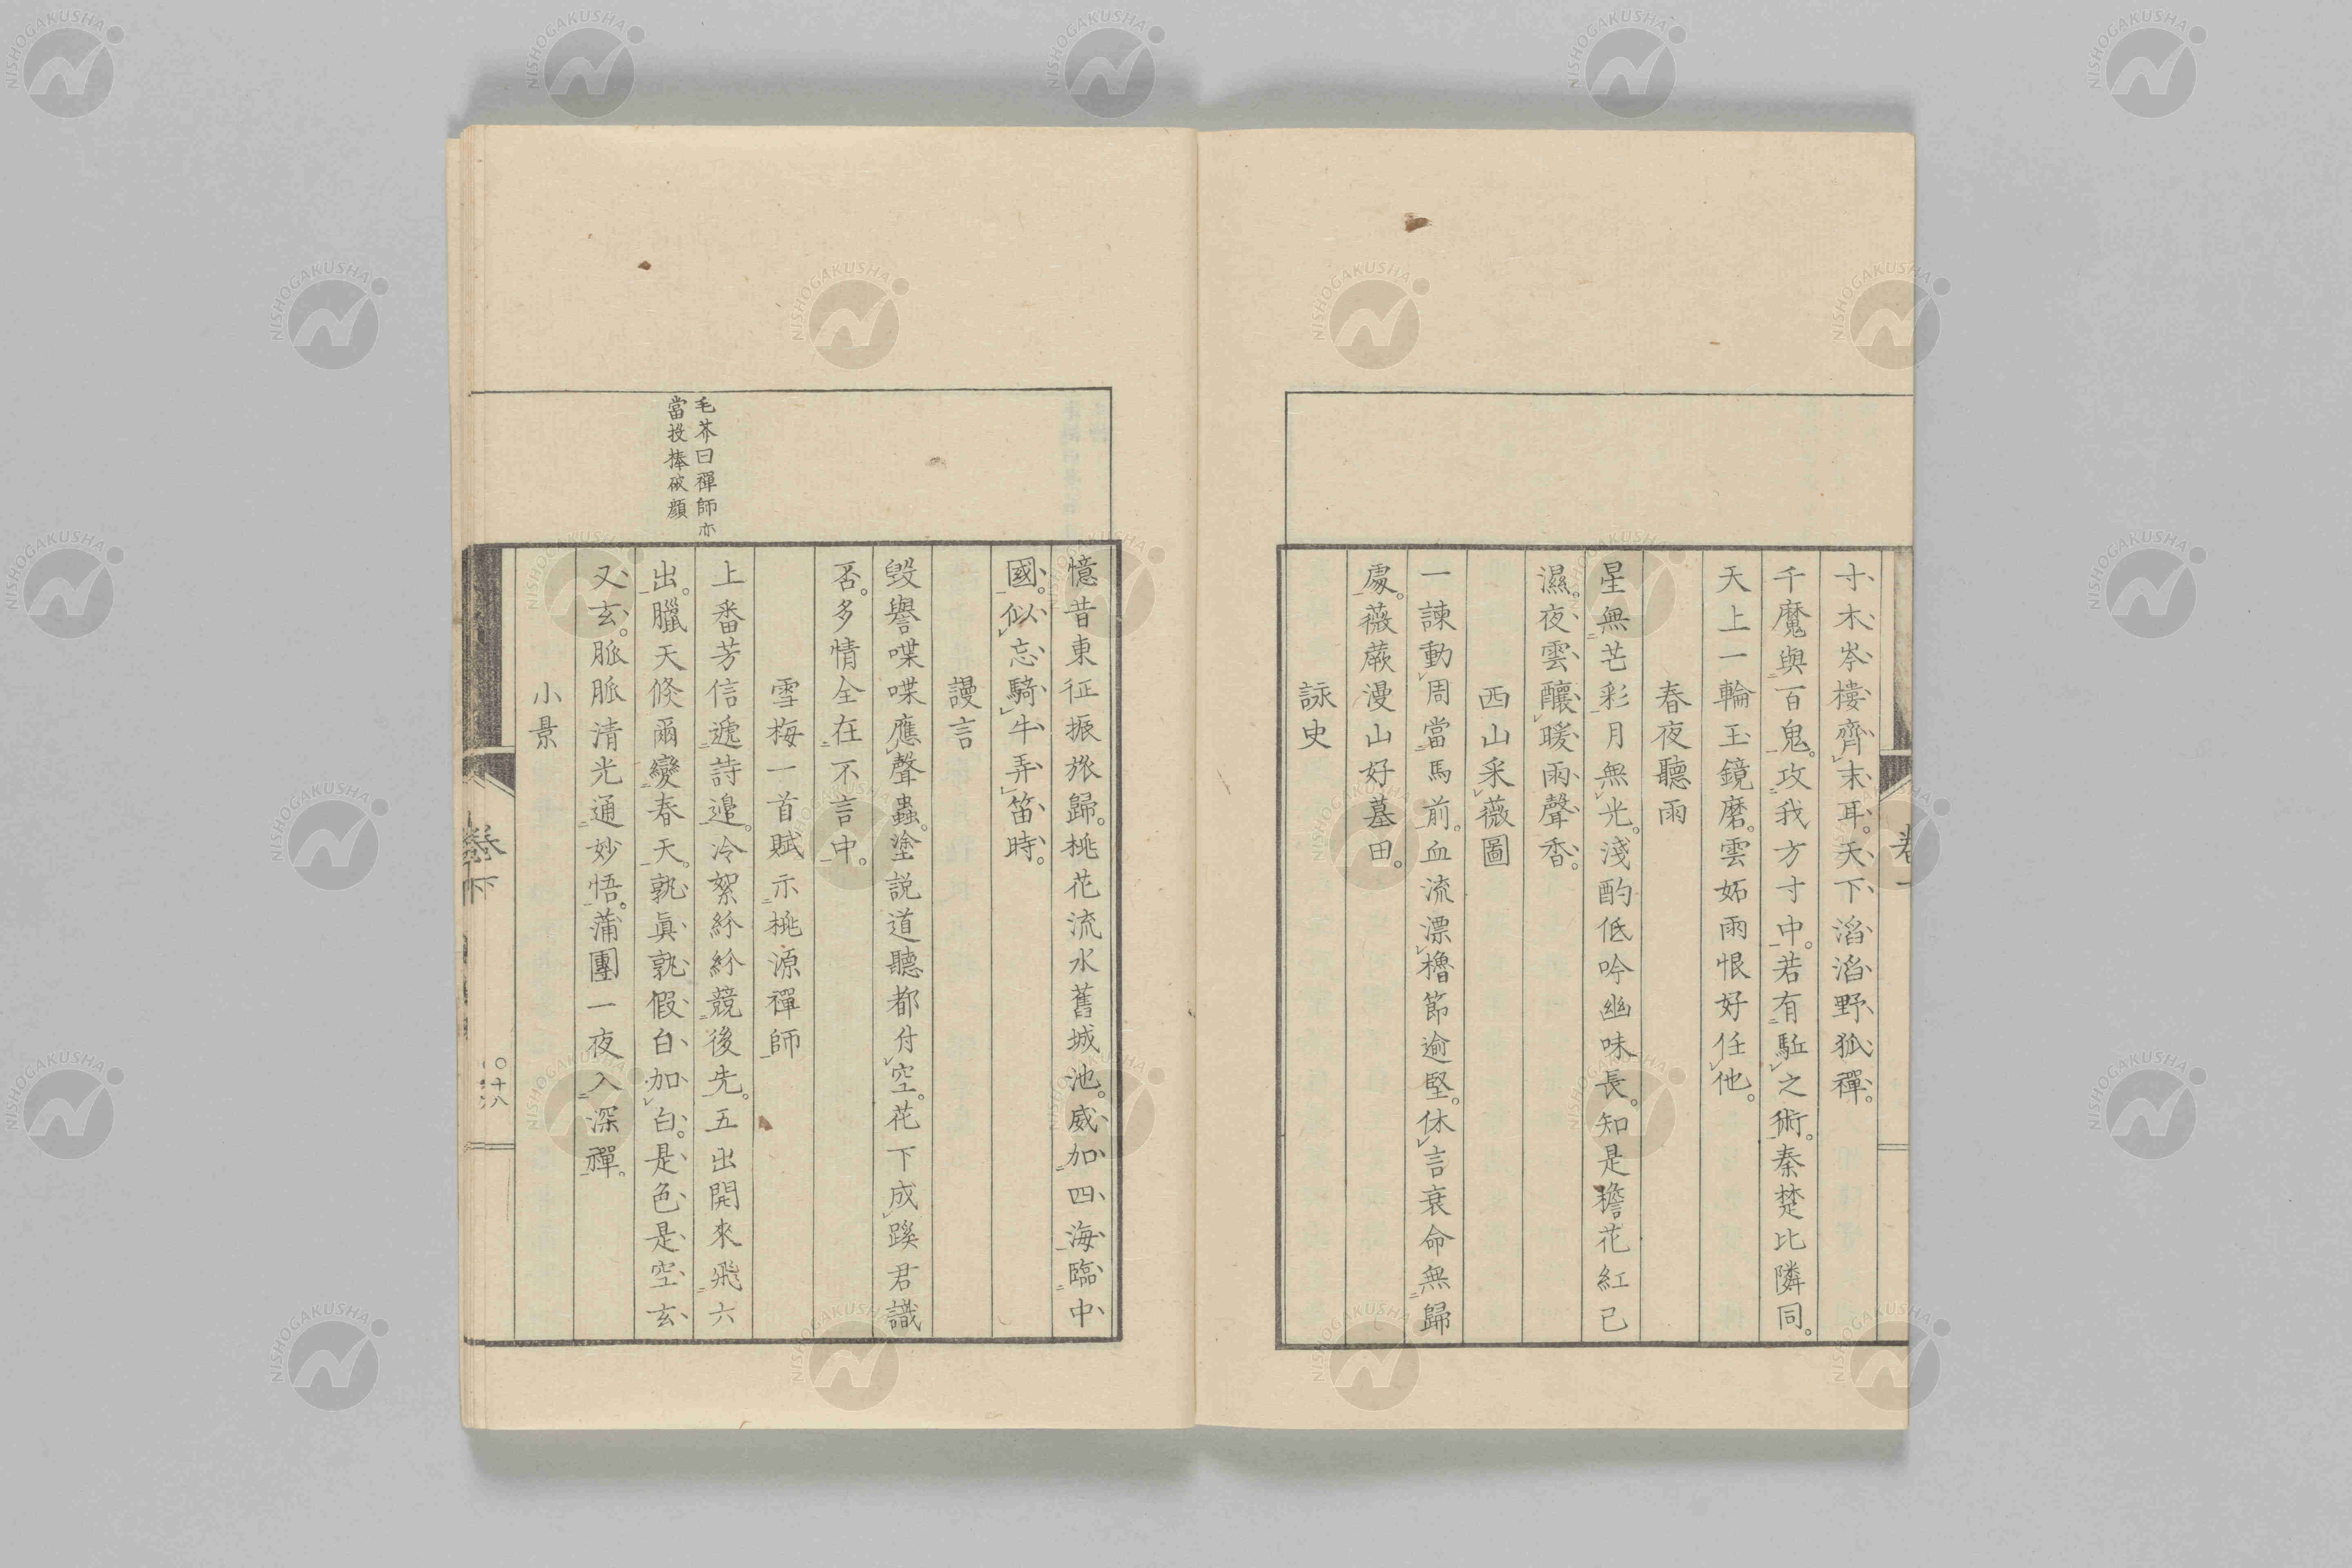 寸木岑樓齊末耳。天下滔滔野狐禪。
千魔與百鬼。攻我方寸中。若有駈之術。秦楚比隣同。
天上一輪玉鏡磨。雲妬雨恨好任他。
春夜聽雨
星無芒彩月無光。淺酌低吟幽味長。知是檐花紅已
濕。夜雲釀暖雨聲香。
西山采薇圖
一諫動周當馬前。血流漂櫓節逾堅。休言衰命無歸
處。薇蕨漫山好墓田。
詠史
憶昔東征振旅歸。桃花流水舊城池。威加四海臨中
國。似忘騎牛弄笛時。
謾言
毀譽喋喋應聲蟲。塗説道聽都付空。花下成蹊君識
否。多情全在不言中。
雪梅一首賦示桃源禪師
上番芳信遞詩邉。冷絮紛紛競後先。五出開來飛六
出。臘天倐爾變春天。孰眞孰假白加白。是色是空玄
又玄。脈脈清光通妙悟。蒲團一夜入深禪。
小景
毛芥曰禪師亦
當投捧破顔
卷下
〇十八
NISHOGAKUSHA